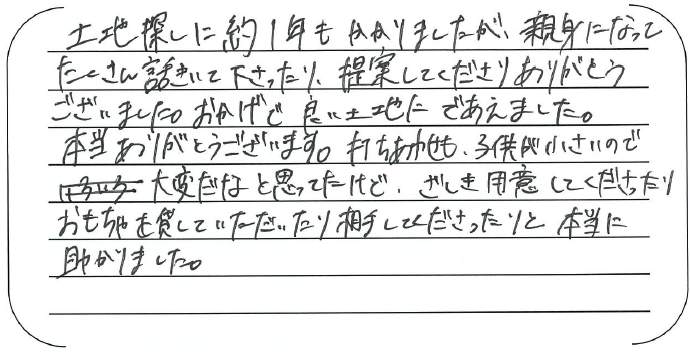 土地探しに約1年もかかりましたが、親身になって
たくさん話きいて下さったり、提案してくださりありがとう
ございました。おかげで良い土地にであえました。
本当ありがとうございます。打ちあわせも、子供が小さいので
大変だなと思ってたけど、ざしき用意してくださったり
おもちゃを貸していただいたり相手してくださったりと本当に
助かりました。